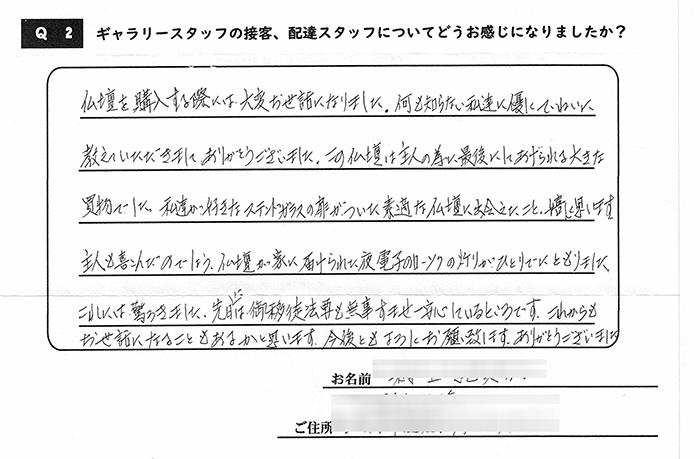 Q 2 ギャラリースタッフの接客、配達スタッフについてどうお感じになりましたか？
仏壇を購入する際には大変お世話になりました。何も知らない私達に優しくていねいに
教えていただきまして ありがとうございました。この仏壇は主人の為に最後にしてあげられる大きな
買物でした。私達が好きなステンドガラスの扉がついた素適な仏壇に出会えたこと、嬉しく思います。
主人も喜んだのでしょう、仏壇が家に届けられた夜 電子のローソクの灯りがひとりでにともりました、
これには驚ろきました。先日は 御移徒法要も無事すませ一安心しているところです。これからも
お世話になることもあるかと思います。今後ともよろしくお願い致します。ありがとうございました
お名前
ご住所